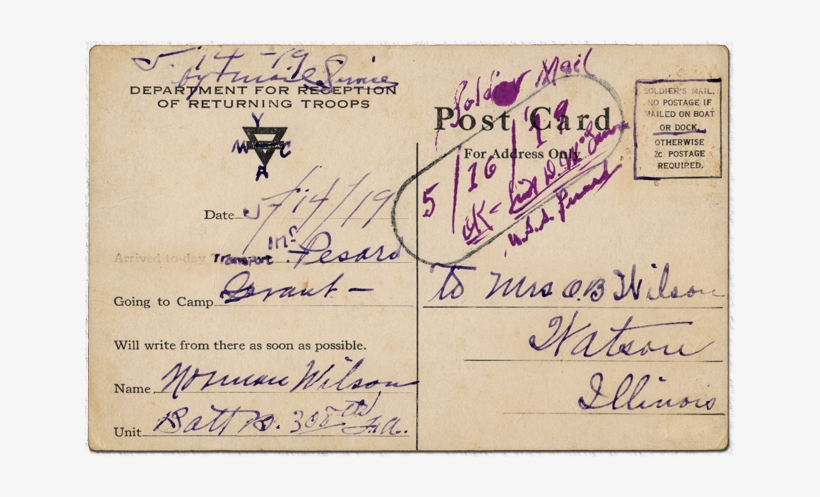 5/14-19
by Amail Service
DEPARTMENT FOR RECEPTION
OF RETURNING TROOPS
Y
M C
A
Date 5/14/19
Arrived to-day Transport Pesaro
Going to Camp Grant -
Will write from there as soon as possible.
Name Norman Wilson
Unit Batt D. 308th F.A.
Soldier Mail
Post Card
For Address Only
5/16/19
OK-
U.S.S.
SOLDIER'S MAIL.
NO POSTAGE IF
MAILED ON BOAT
OR DOCK.
OTHERWISE
2c POSTAGE
REQUIRED.
to Mrs O.B Wilson
Watson
Illinois